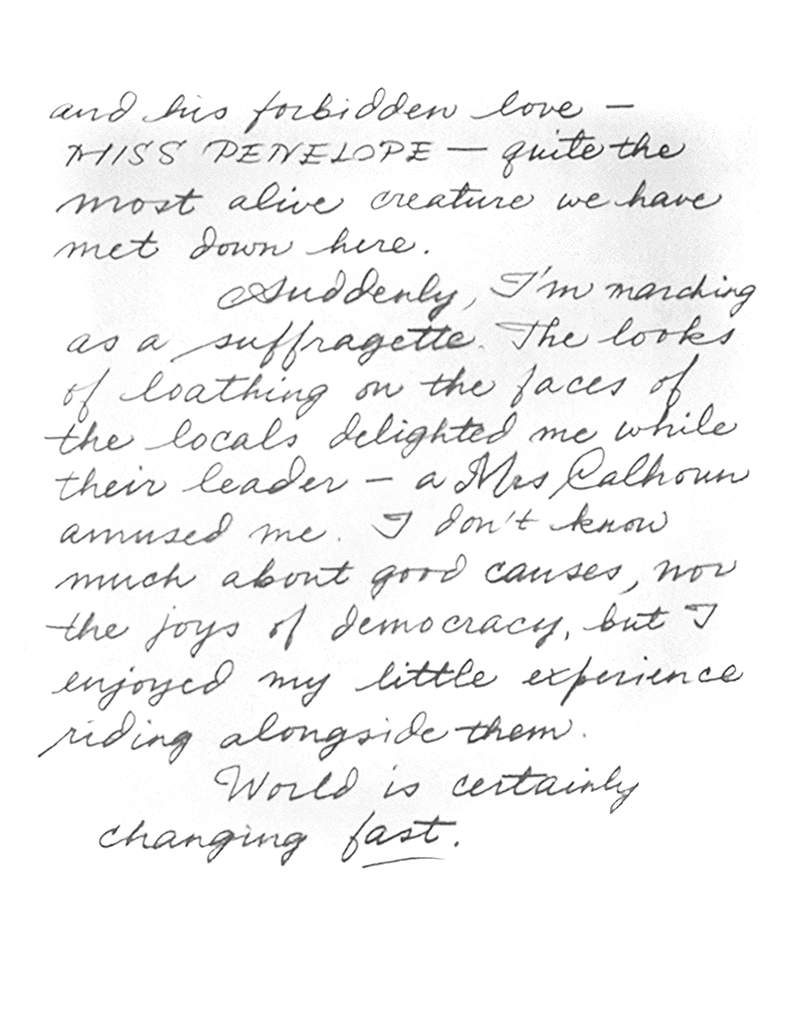 and his forbidden love –
MISS PENELOPE – quite the
most alive creature we have
met down here.
Suddenly, I'm marching
as a suffragette. The looks
of loathing on the faces of
the locals delighted me while
their leader – a Mrs Calhoun
amused me. I don't know
much about good causes, nor
the joys of democracy, but I
enjoyed my little experience
riding alongside them.
World is certainly
changing fast.